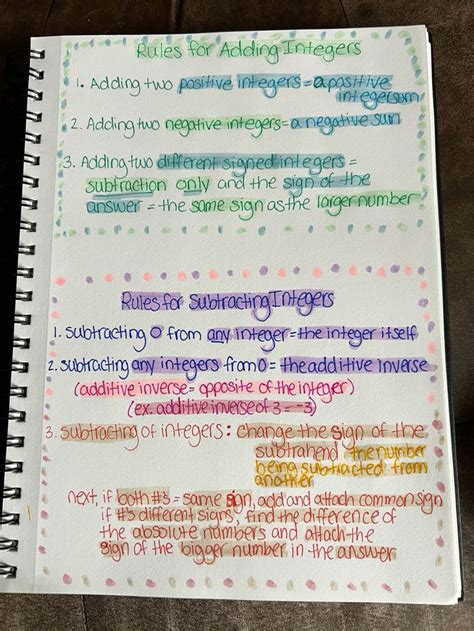 Rules for Adding Integers
1. Adding two positive integers = a positive
integersum
2. Adding two negative integers = a negative sum
3. Adding two different signed integers =
subtraction only and the sign of the
answer = the same sign as the larger number
Rules for Subtracting Integers
1. Subtracting 0 from any integer = the integer itself
2. subtracting any integers from 0 = the additive inverse
(additive inverse = opposite of the integer)
(ex. additive inverse of 3 = -3)
3. subtracting of integers: change the sign of the
subtrahend the number
being subtracted from
another
next, if both #s = same sign, add and attach common sign
if #s different signs, find the difference of
the absolute numbers and attach the
sign of the bigger number in the answer